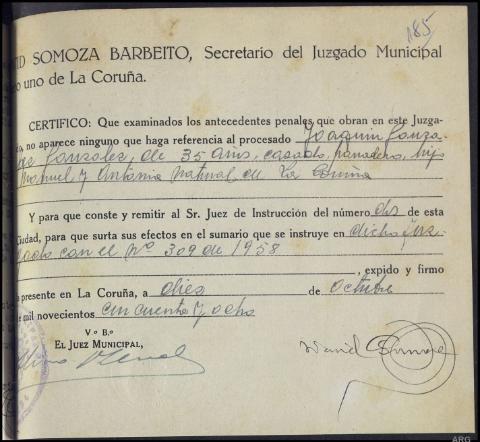 185
ID SOMOZA BARBEITO, Secretario del Juzgado Municipal
o uno de La Coruña.
CERTIFICO: Que examinados los antecedentes penales que obran en este Juzga-
o, no aparece ninguno que haga referencia al procesado Joaquin Gonza
lez Gonzalez, de 35 años, casado, panadero, hijo
Manuel y Antonia natural de La Coruña
Y para que conste y remitir al Sr. Juez de Instrucción del número dos de esta
Ciudad, para que surta sus efectos en el sumario que se instruye en dicho Juz-
gado con el Nº 309 de 1958
, expido y firmo
a presente en La Coruña, a diez de octubre
e mil novecientos cincuenta y ocho
V.º B.º
EL JUEZ MUNICIPAL,
David Somoza
ARG